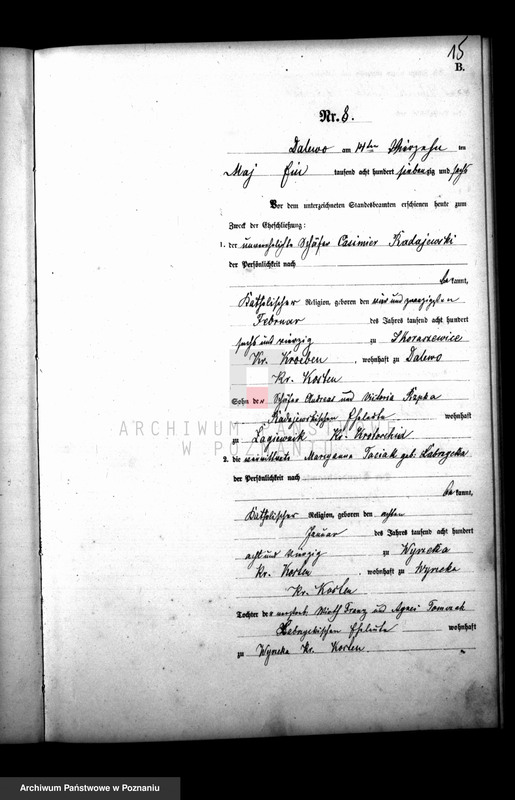 15
B.
Nr. 8.
Dalewo am 14ten Vierzehn ten
Maj Ein tausend acht hundert siebenzig und sechs
Vor dem unterzeichneten Standesbeamten erschienen heute zum
Zweck der Eheschließung:
1. der unverehelichte Schäfer Casimier Kadajewski
der Persönlichkeit nach
be kannt,
Katholischer Religion, geboren den vier und zwanzigsten
Februar des Jahres tausend acht hundert
sechs und vierzig zu Skoraszewice
Kr. Kroeben, wohnhaft zu Dalewo
Kr. Kosten
Sohn der Schäfer Andreas und Victoria Rzpka
Kadajewskischen Eheleute wohnhaft
zu Lagiewnik Kr. Krotoschin
2. die verwittwete Maryanna Taciak geb.
der Persönlichkeit nach
be kannt,
Katholischer Religion, geboren den achten
Januar des Jahres tausend acht hundert
acht und vierzig zu Wyrzeka
Kr. Kosten, wohnhaft zu Wyrzeka
Kr. Kosten
Tochter der verstorb. Wirth Franz und Agnes
Eheleute wohnhaft
zu Wyrzeka Kr. Kosten
ARCHIWUM PAŃSTWOWE
W POZNANIU
Archiwum Państwowe w Poznaniu